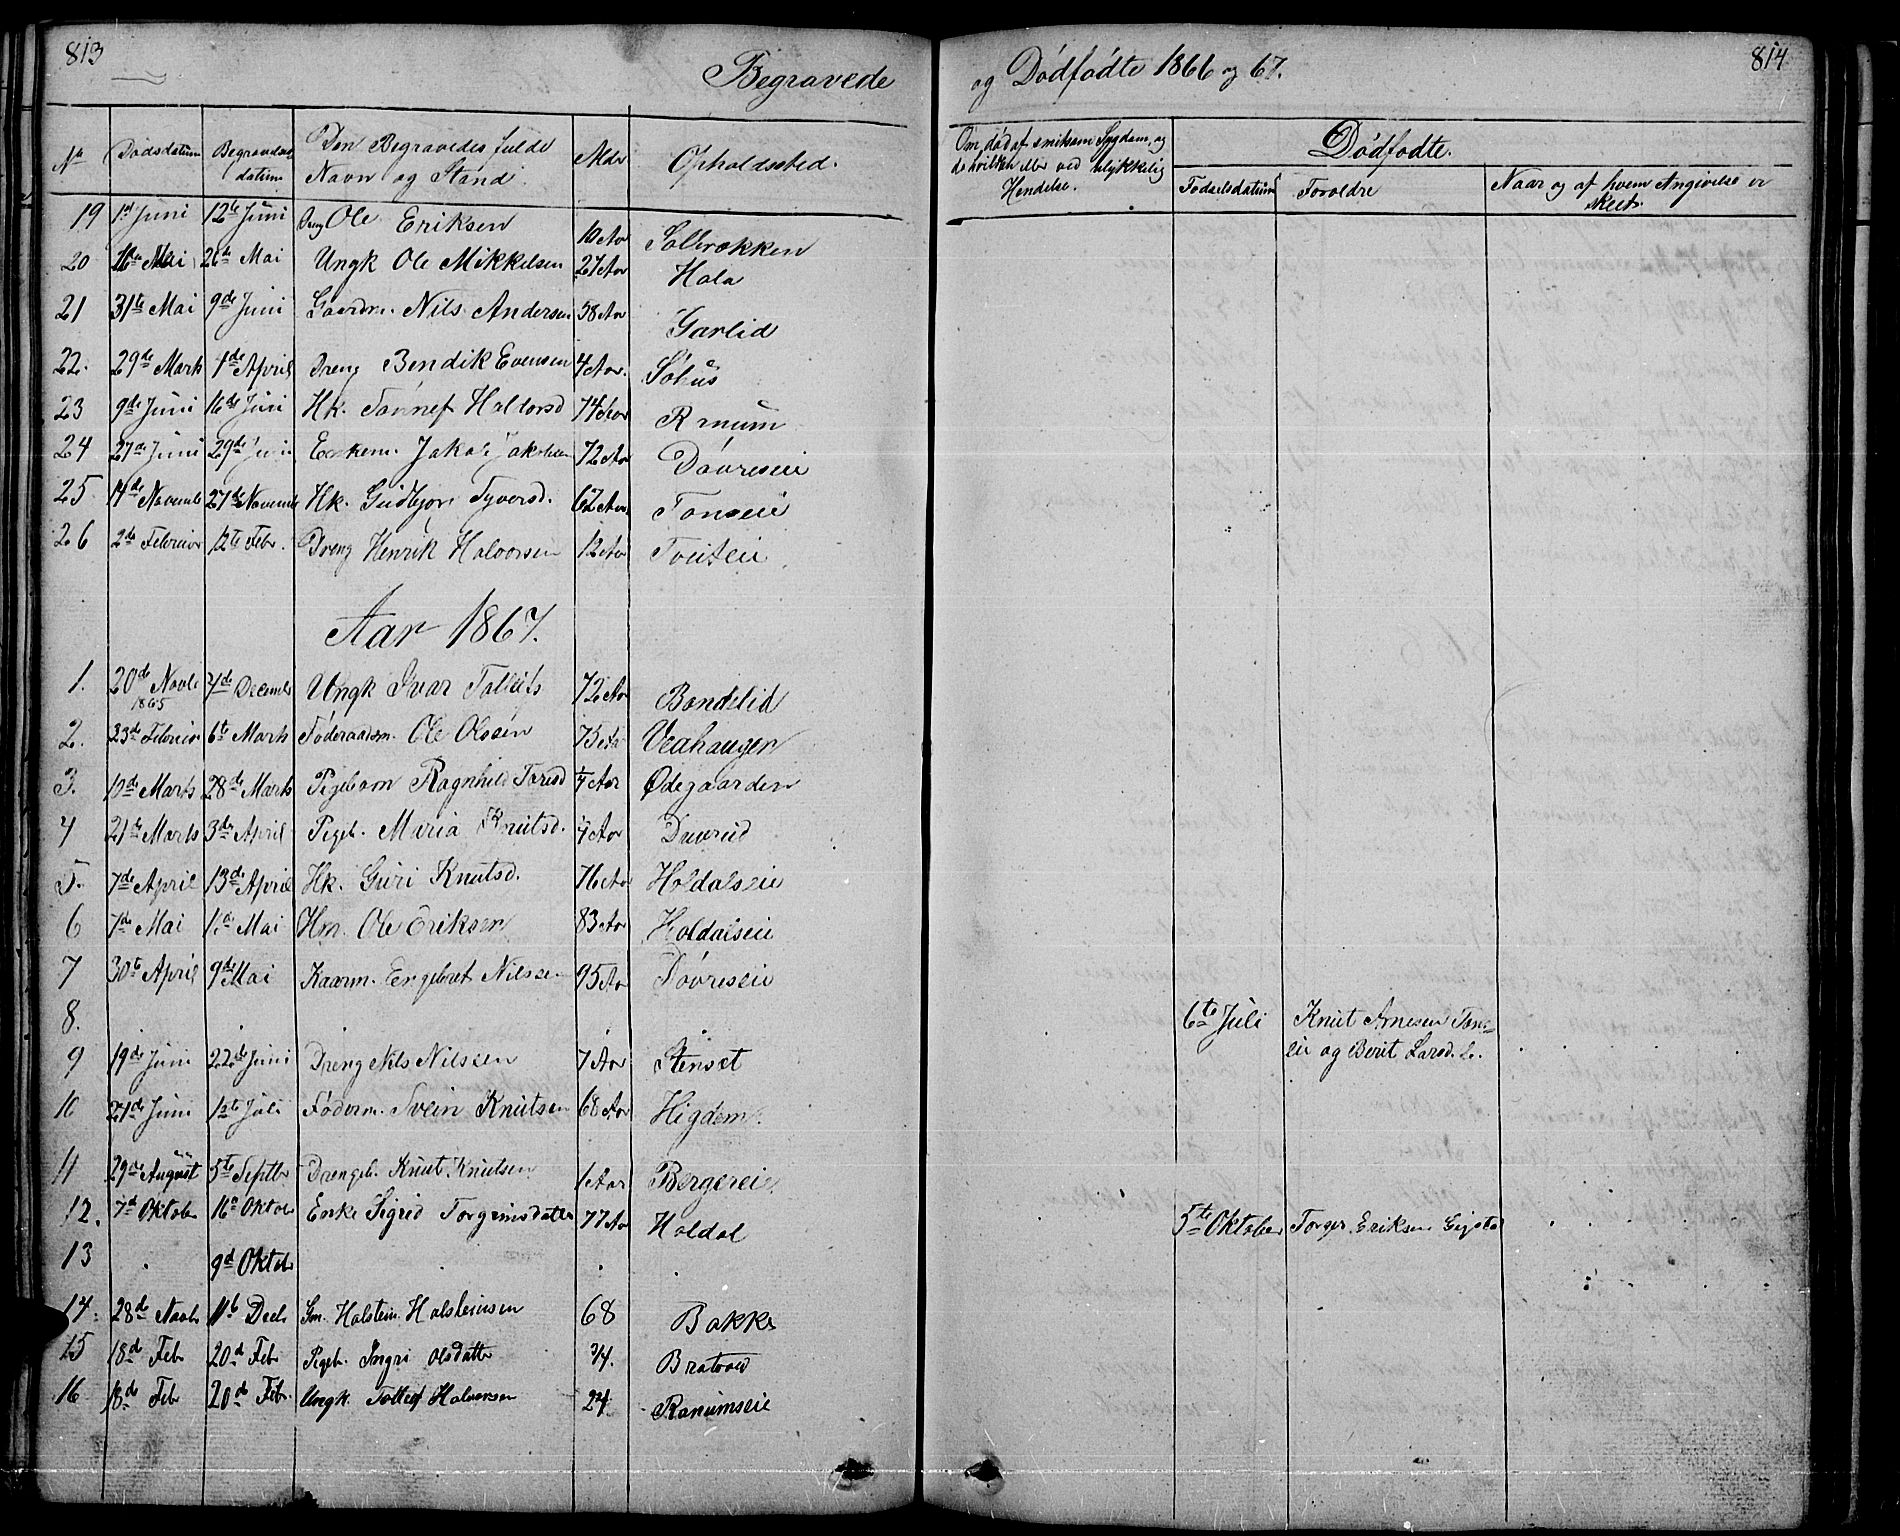 813
Begravede
og Dödfödte 1866 og 67.
814
No Dödsdatum Begravelses datum Den Begravedes fulde Navn og Stand Alder Opholdssted.
Om död af smitsom Sygdom, og
Hendelse.
Dödfodte.
Fodselsdatum Foreldre Naar og af hvem Angivelse er skeet.
19 1st Juni 12te Juni Dreng Ole Eriksen 10 Aar Solbrækken
20 Mai 26de Mai Ungk Ole Mikkelsen 27 Aar Hola
21 31te Mai 9de Juni Gaardm. Nils Andersen 58 Aar Garlid
22. 29de Marts 1de April Dreng Bendik Evensen 4 Aar. Söhus
23 9de Juni 16de Juni Hk. Haldorsd 74 Aar
24 27de Juni 29de Juni Jakob Jakobsen 72 Aar Dövreseie
25 14de Novemb 27de Novemb Hk. Gudbjör 62 Aar Tonseie
26 2de Februar 12te Febr. Dreng Henrik Halvorsen 12 Aar
Aar 1867.
1. 20de Novbr 1865 7de Decemb Ungk Ivar Tollefs 72 Aar Bondelid
2. 23de Februar 6te Marts Föderaadsm. Ole Olsen 75 Aar Veahaugen
3. 12de Marts 28de Marts Pigebarn Ragnhild Toresd ¼ Aar Ødegaarden
4 21de Marts 3de April Pigeb. Maria Knutsd. ¼ Aar
5. 7de April 13de April Hk. Guri Knutsd. 76 Aar Holdalseie
6 7de Mai Mai Hm. Ole Eriksen 83 Aar Holdalseie
7 30te April 9de Mai Engebret Nilssen 95 Aar Dövreseie
8. 6te Juli Knut Arnesen Tonseie og Berit Larsd. do.
9 19de Juni 22de Juni Dreng Nils Nilssen 7 Aar Stenset
10 27de Juni 1ste Juli Föderm. Svein Knutsen 68 Aar Higdem.
11 29de August 5te Septbr Drengeb. Knut Knutsen 1 Aar Bergereie.
12. 7d Oktob 16de Oktob Enke Sigrid Torgrimsdatter 77 Aar Holdal
5te Oktober Torger Eriksen
13 9d Oktob
14. 28de Novb 11te Decb Gm. Halstein Halsteinsen 68 Bakke
15 18d Feb 20d Feb Pigeb. Ingri Olsdatter ¾.
16 18de Feb 20d Feb. Ungk. Tollef Halvorsen 24 Ranumseie